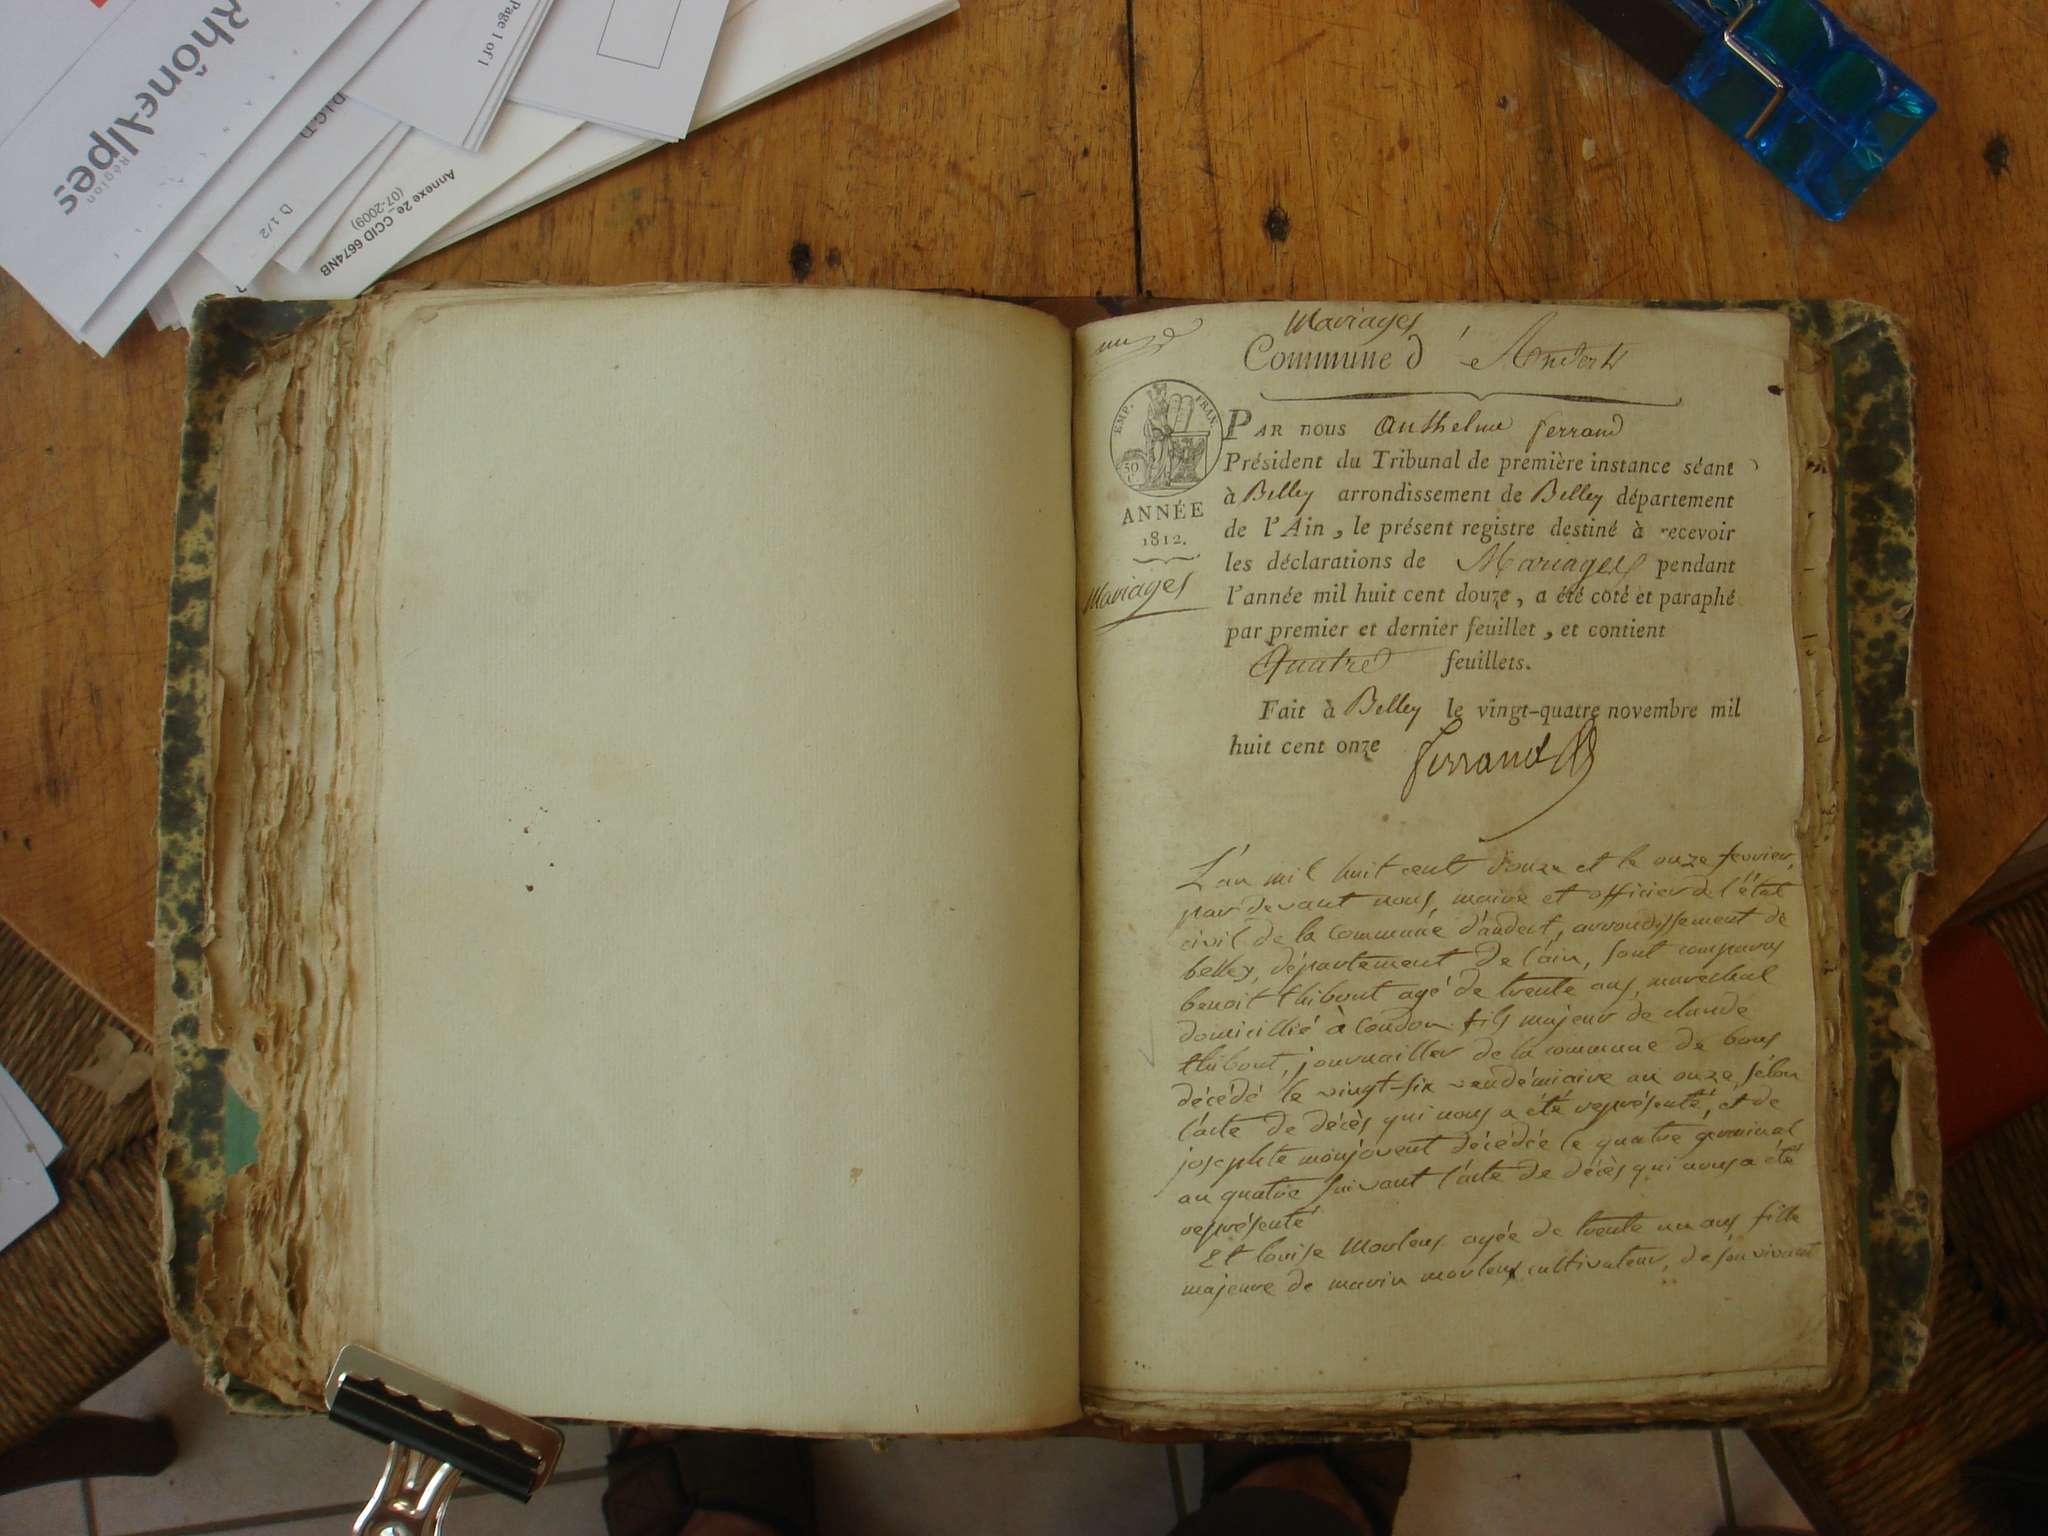 Rhône-Alpes
Région
Page 1 of 1
D.I.C.T.
D 1/2
Annexe 2e_CCID 6674NB
(07-2009)
Mariages
Commune d' Andert
EMP. FRAN.
50
ANNÉE
1812.
Mariages
PAR nous Anthelme ferrand
Président du Tribunal de première instance séant
à Belley arrondissement de Belley département
de l'Ain, le présent registre destiné à recevoir
les déclarations de Mariages pendant
l'année mil huit cent douze, a été coté et paraphé
par premier et dernier feuillet, et contient
Quatre feuillets.
Fait à Belley le vingt-quatre novembre mil
huit cent onze ferrand
L'an mil huit cent douze et le onze fevrier,
par devant nous, maire et officier de l'état
civil de la commune d'andert, arrondissement de
belley, département de l'ain, sont comparus
benoit thibout agé de trente ans, maréchal
domicilié à Condon fils majeur de claude
thibout, journailler de la commune de bons
décédé le vingt-six vendémiaire an onze, sélon
l'acte de décès qui nous a été représenté, et de
josephte monjovent décédée le quatre germinal
an quatre suivant l'acte de décès qui nous a été
représenté
Et louise Morlens agée de trente un ans fille
majeure de marin morlens cultivateur, de son vivant